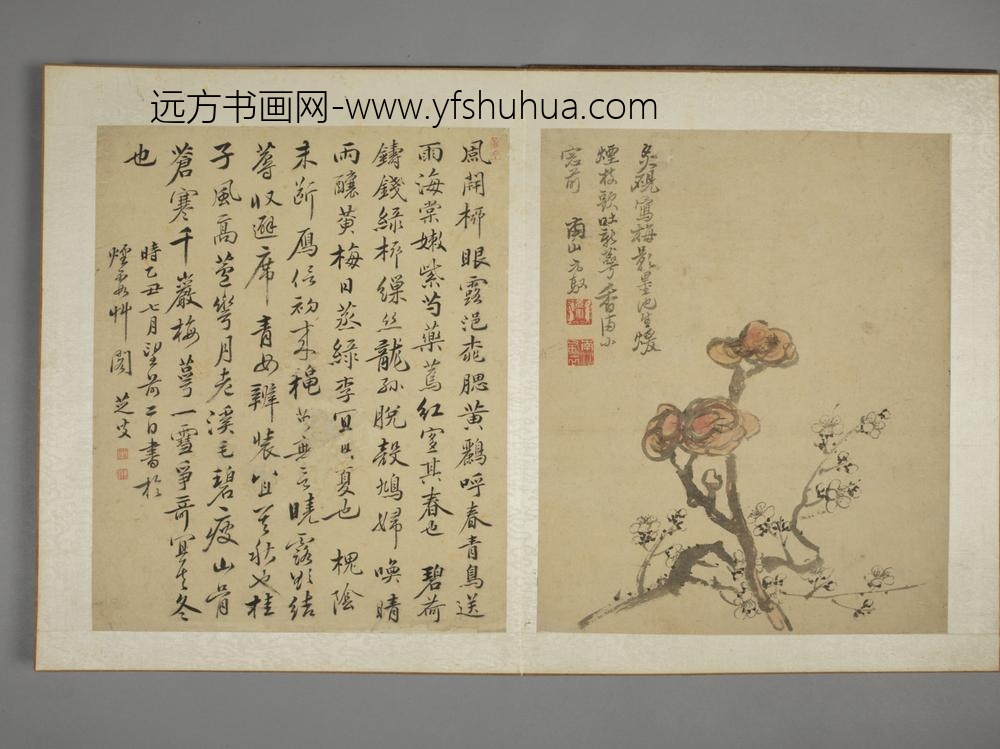 远方书画网-www.yfshuhua.com
炙硯寫梅影墨池生煖
煙枝欹吐新萼香滿小
窓前
風開柳眼露浥桃腮黃鸝呼春青鳥送
雨海棠嫩紫芍藥蔫紅宜其春也 碧荷
鑄錢綠柳繅丝龍孫脫殼鳩婦喚晴
雨釀黃梅日蒸綠李宜其夏也 槐陰
未斷鴈信初來龝英無言曉露欲結
蓐收避席 青女辦裝宜其秋也桂
子風高蘆彎月老溪毛碧瘦山骨
蒼寒千巖梅萼一雪爭奇宜其冬
也
時乙丑七月望前二日書於
煙霞艸閣 芝叟